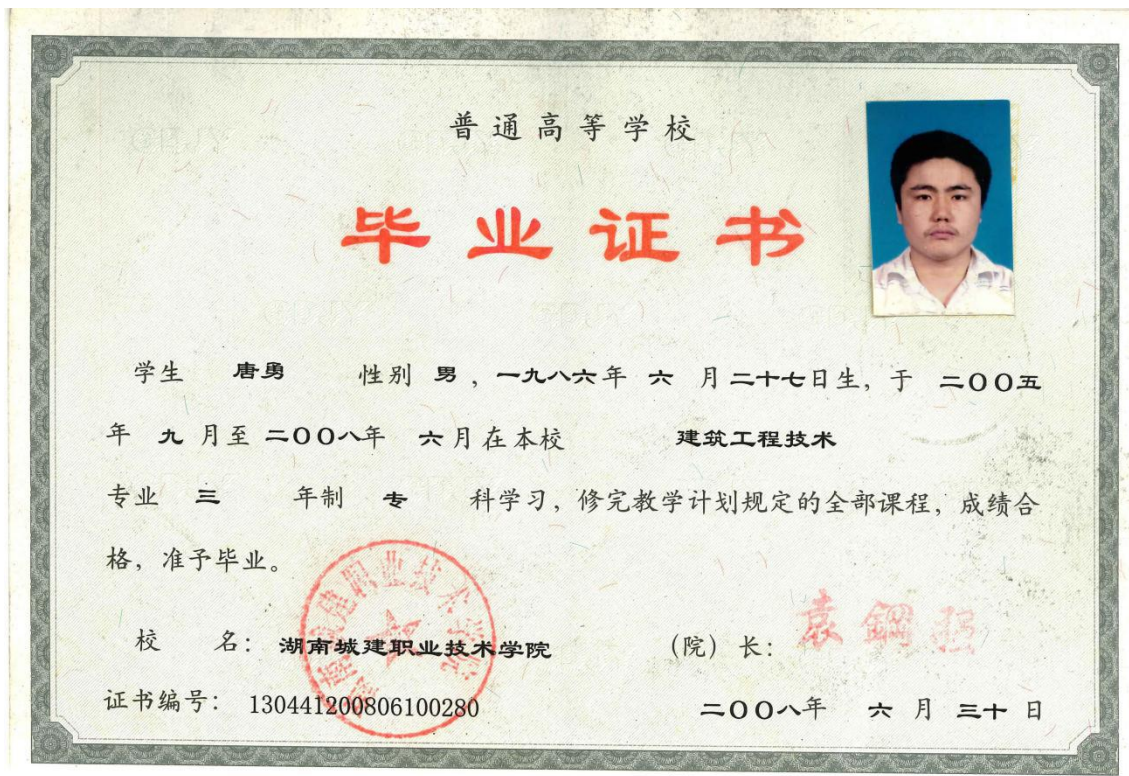 普通高等学校
毕业证书
学生 唐勇 性别 男，一九八六年 六 月二十七日生，于 二00五
年 九 月至 二00八年 六月在本校 建筑工程技术
专业 三 年制 专 科学习，修完教学计划规定的全部课程，成绩合
格，准予毕业。
湖南城建职业技术学院
校 名：湖南城建职业技术学院 （院）长：袁鋼强
证书编号：130441200806100280 二00八年 六 月 三十 日